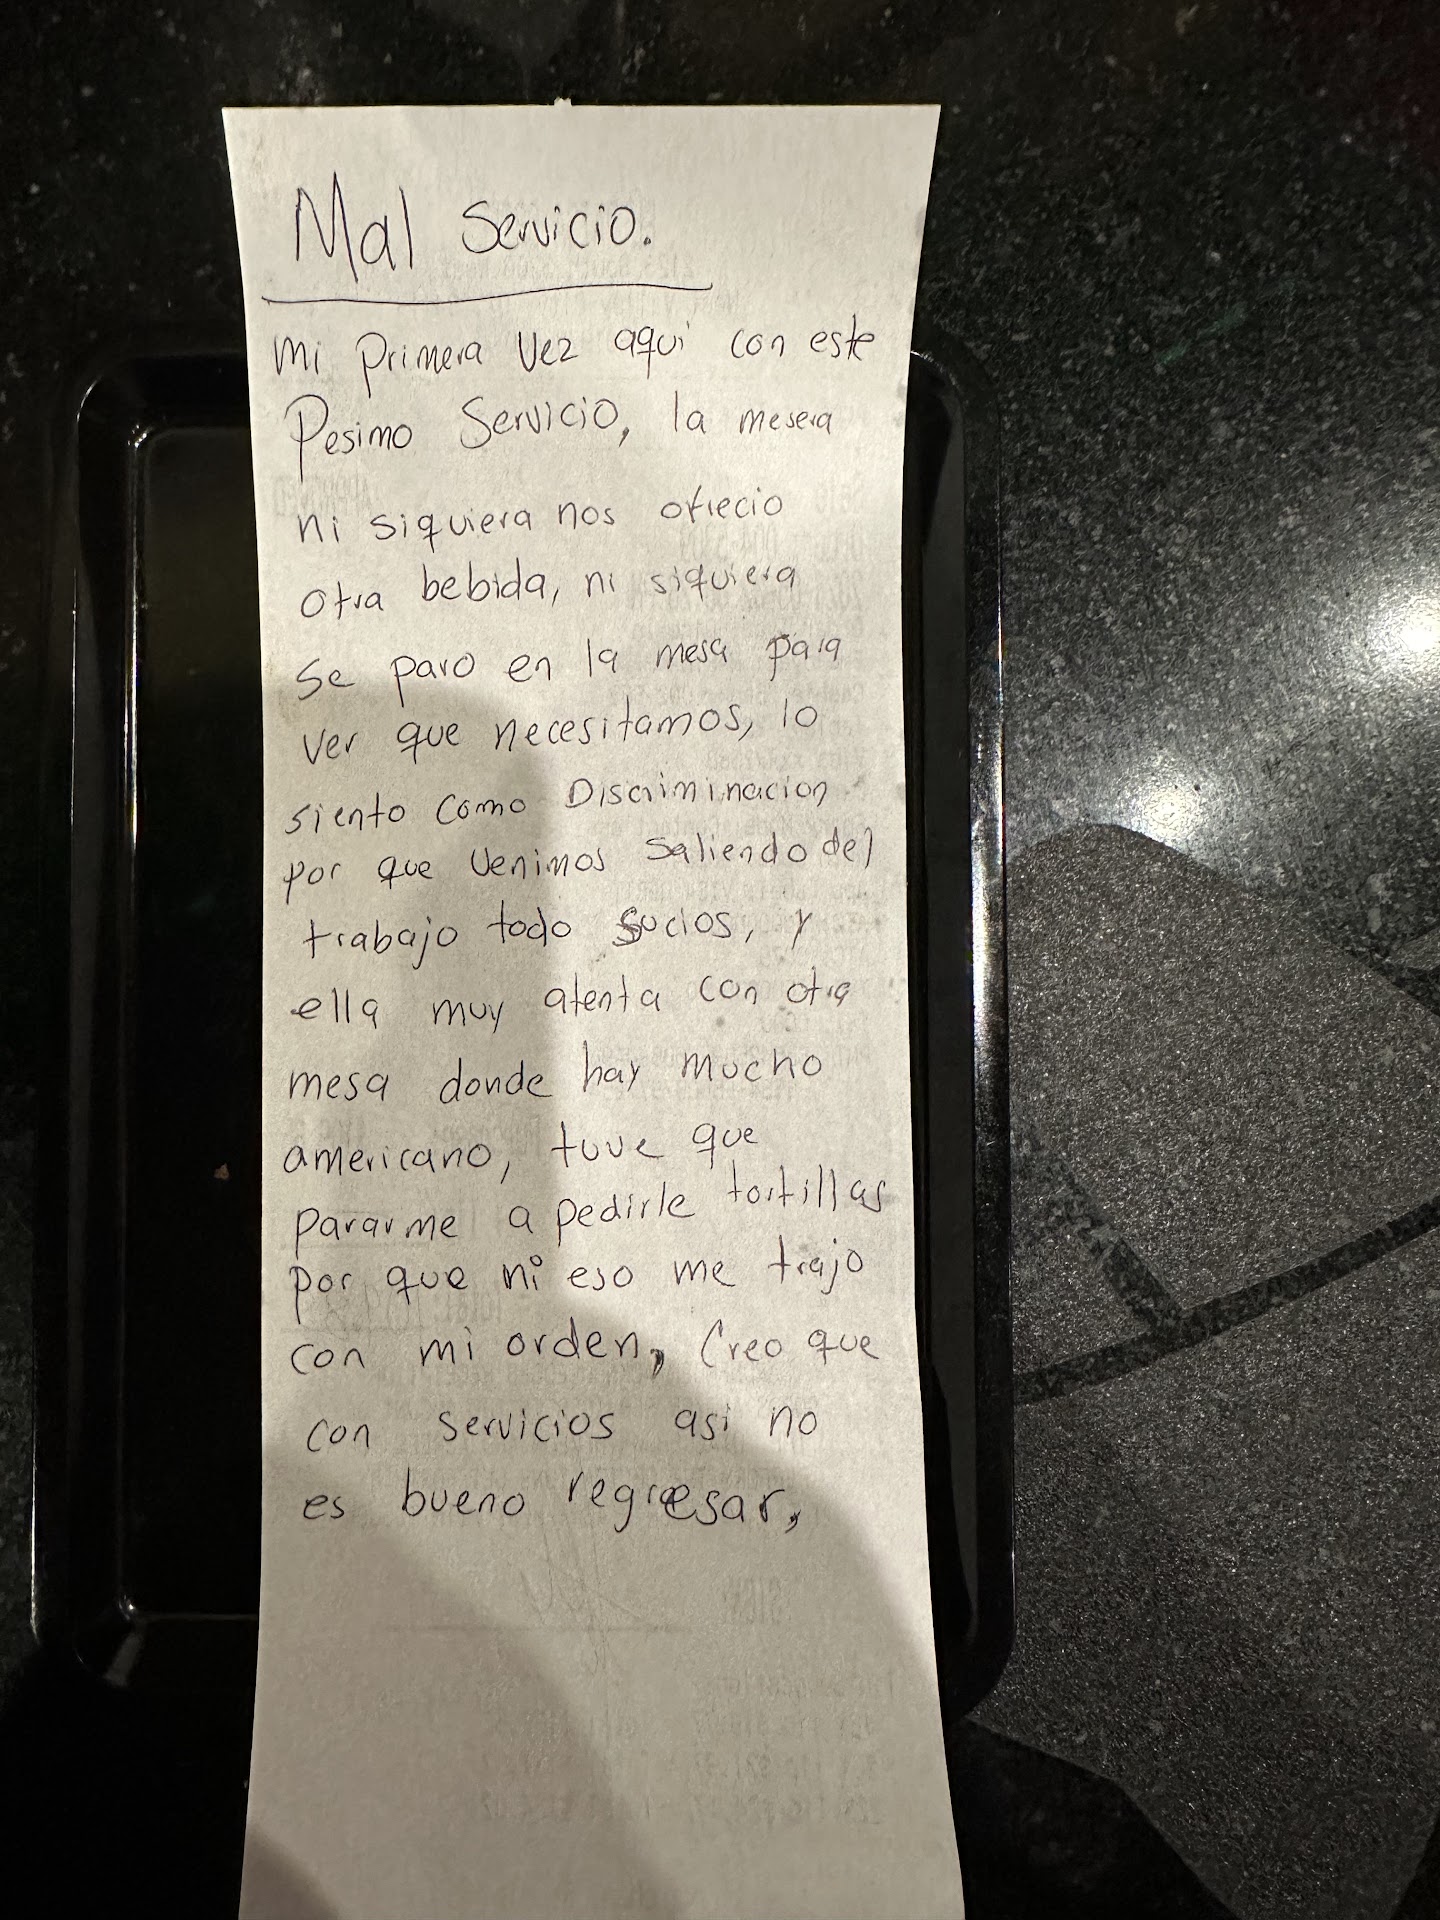 Mal Servicio.
mi primera vez aqui con este
Pesimo Servicio, la mesera
ni siquiera nos ofrecio
otra bebida, ni siquiera
se paro en la mesa para
ver que necesitamos, lo
siento como Discriminacion
por que venimos saliendo del
trabajo todo sucios, y
ella muy atenta con otra
mesa donde hay mucho
americano, tuve que
pararme a pedirle tortillas
por que ni eso me trajo
con mi orden, Creo que
con servicios asi no
es bueno regresar,